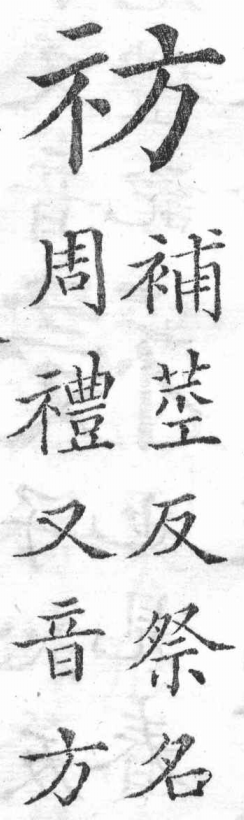 祊
補莖反祭名
周禮又音方